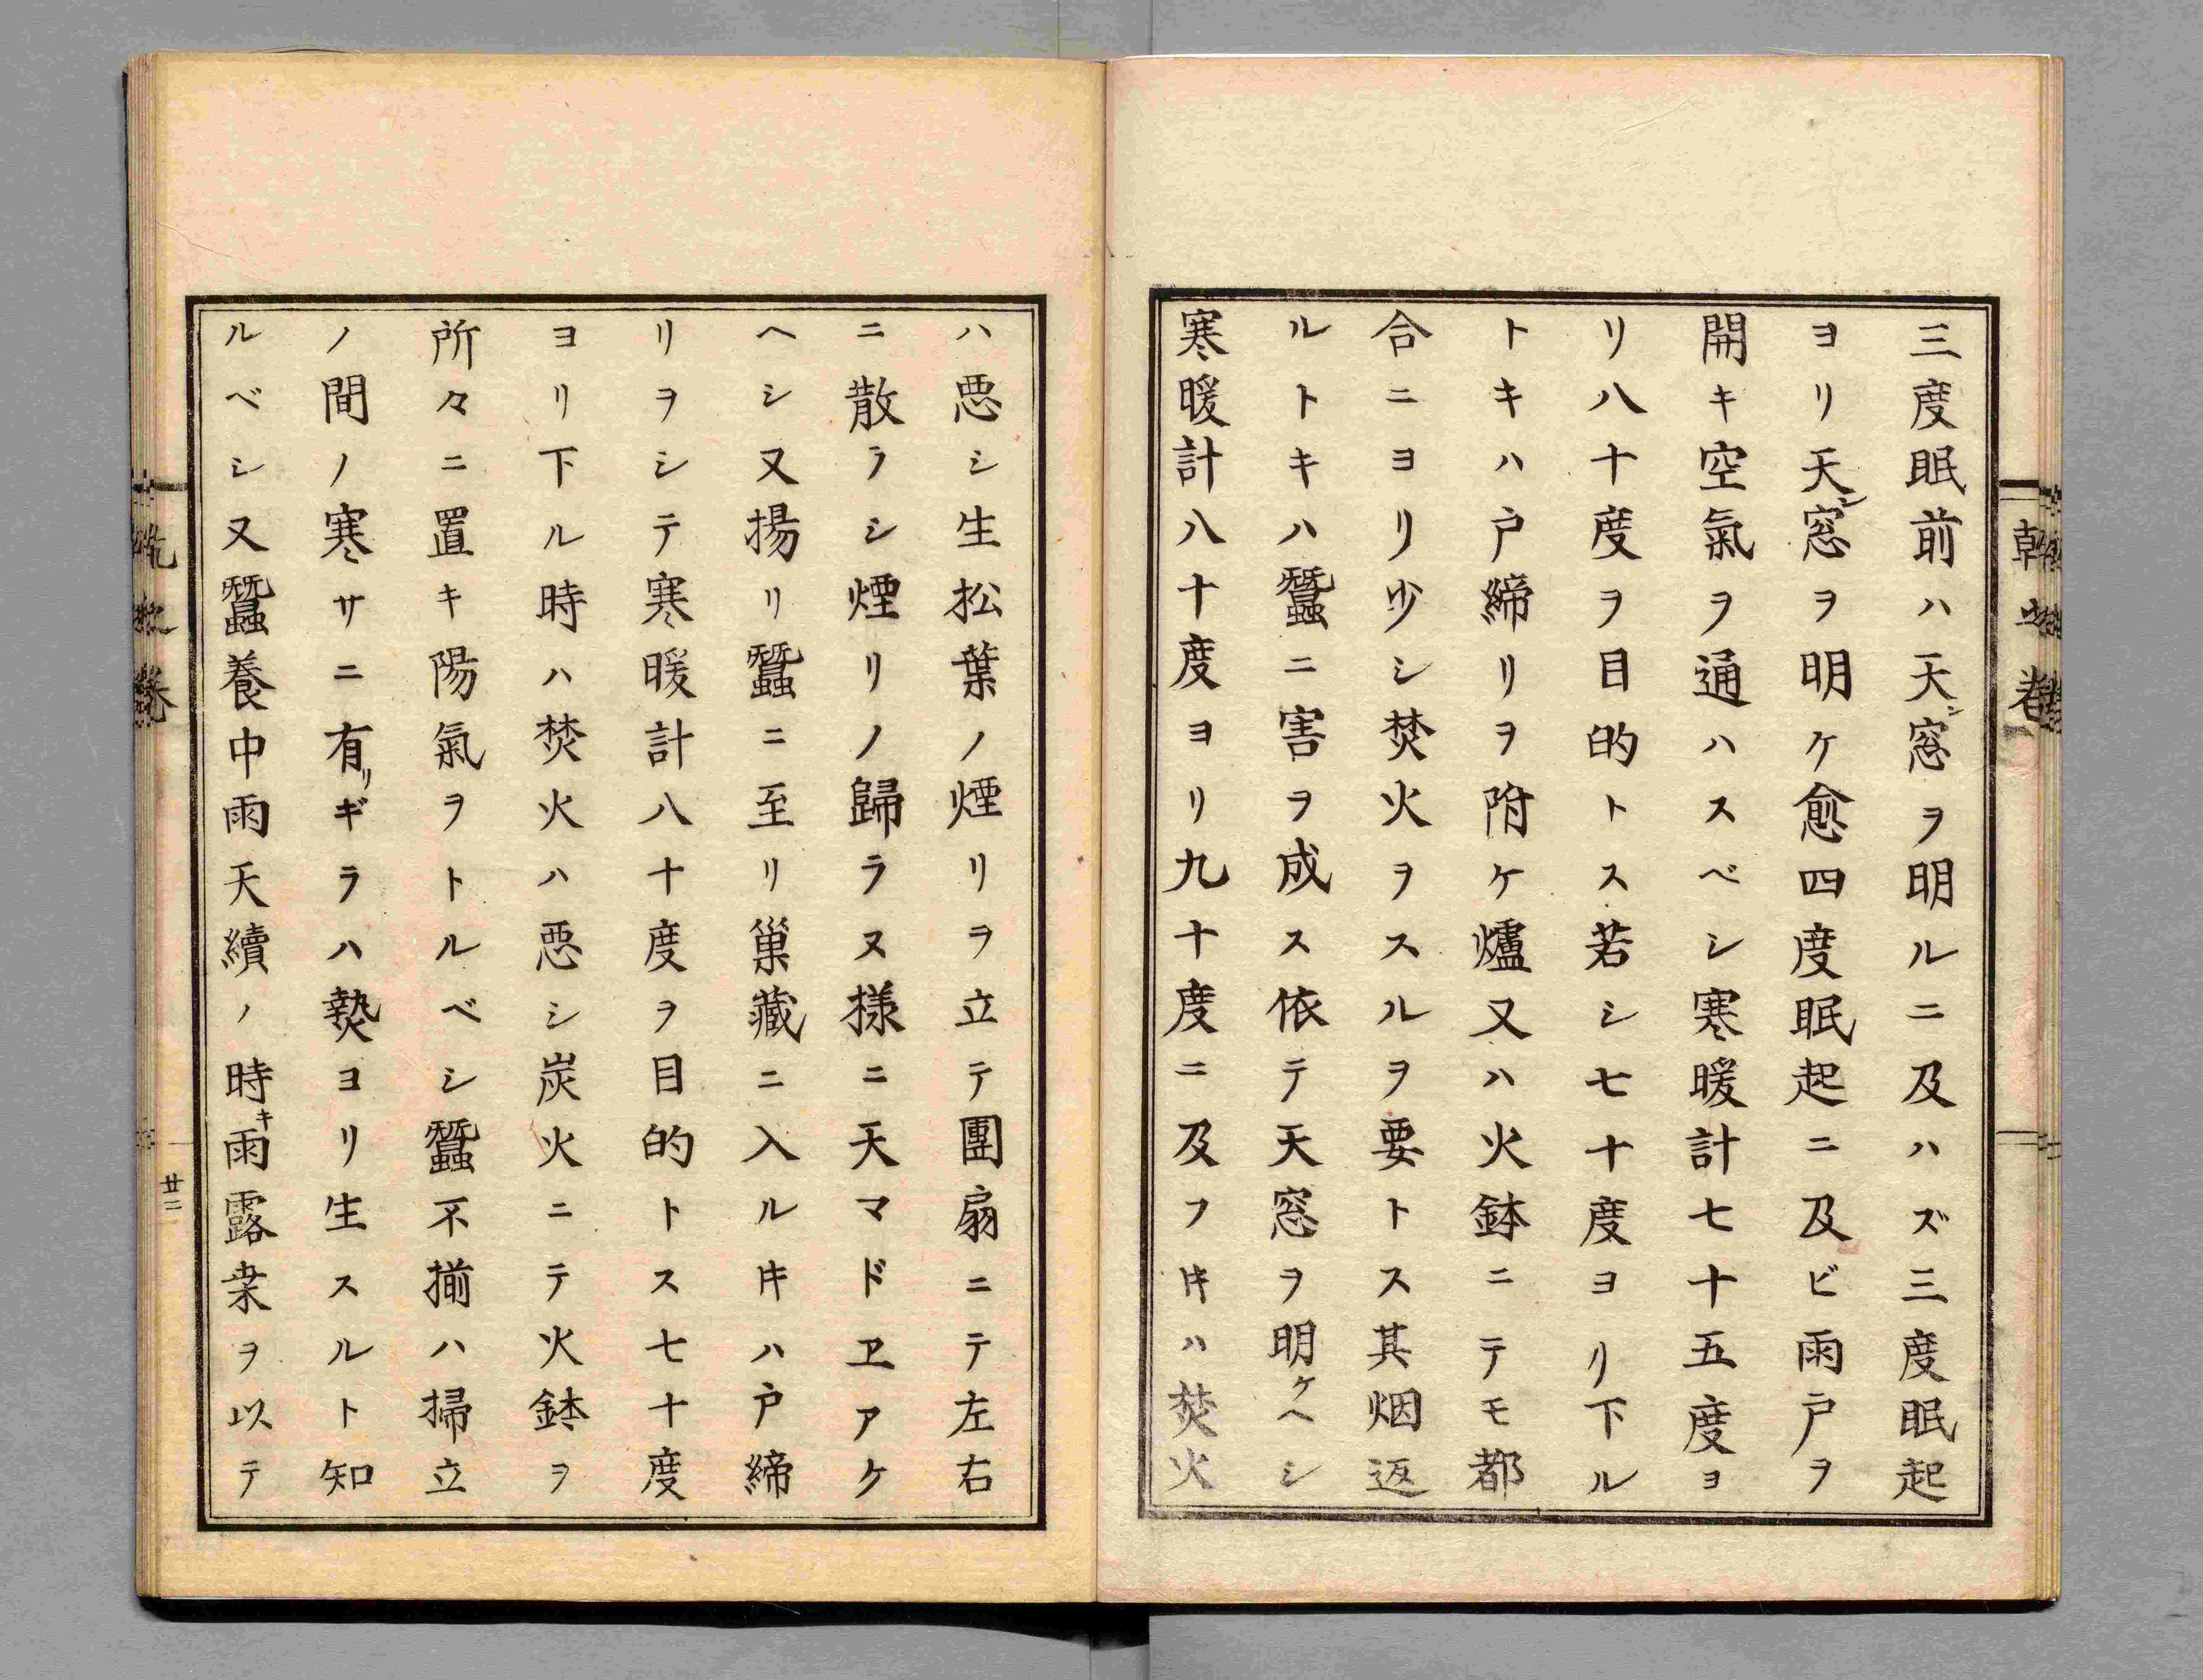 三度眠前ハ天窓ヲ明ルニ及ハズ三度眠起
ヨリ天窓ヲ明ケ愈四度眠起ニ及ビ雨戸ヲ
開キ空氣ヲ通ハスベシ寒暖計七十五度ヨ
リ八十度ヲ目的トス若シ七十度ヨリ下ル
トキハ戸締リヲ附ケ爐又ハ火鉢ニテモ都
合ニヨリ少シ焚火ヲスルヲ要トス其烟返
ルトキハ蠶ニ害ヲ成ス依テ天窓ヲ明ケヘシ
寒暖計八十度ヨリ九十度ニ及フ𪜈ハ焚火
ハ悪シ生松葉ノ煙リヲ立テ團扇ニテ左右
ニ散ラシ煙リノ歸ラヌ様ニ天マドヱアケ
ヘシ又揚リ蠶ニ至リ巢藏ニ入ル𪜈ハ戸締
リヲシテ寒暖計八十度ヲ目的トス七十度
ヨリ下ル時ハ焚火ハ悪シ炭火ニテ火鉢ヲ
所々ニ置キ陽氣ヲトルベシ蠶不揃ハ掃立
ノ間ノ寒サニ有リギラハ㷱ヨリ生スルト知
ルベシ又蠶養中雨天續ノ時キ雨露桒ヲ以テ
乾之卷
廿二